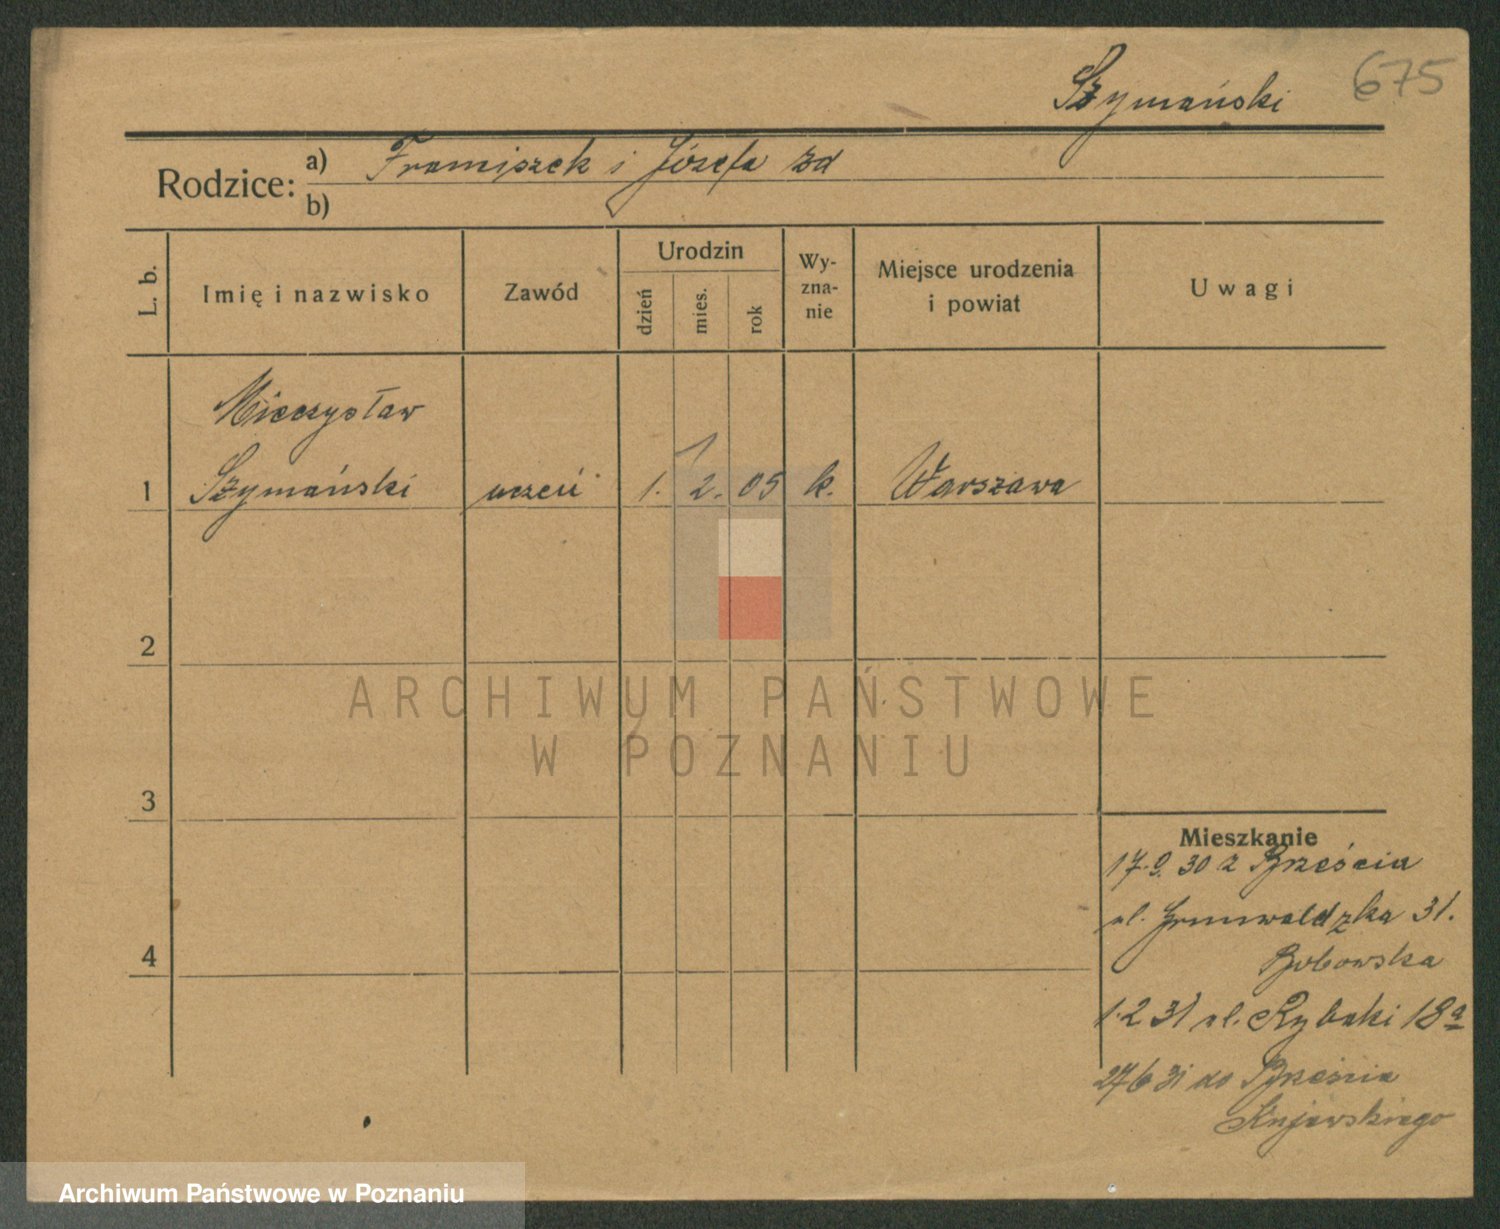 Szymański
675
Rodzice: a) Franciszek i Józefa zd
b)
L. b.
Imię i nazwisko
Zawód
Urodzin
dzień
mies.
rok
Wy-
zna-
nie
Miejsce urodzenia
i powiat
Uwagi
Mieczysław
1 Szymański uczeń 1. 2. 05 k. Warszawa
2
3
4
Mieszkanie
17.9.30 z Brześcia
ul. Grunwaldzka 31.
Bobowska
1.2 31 ul. Rybaki 18a
27/6 31 do Brześcia
Kujawskiego
ARCHIWUM PAŃSTWOWE
W POZNANIU
Archiwum Państwowe w Poznaniu